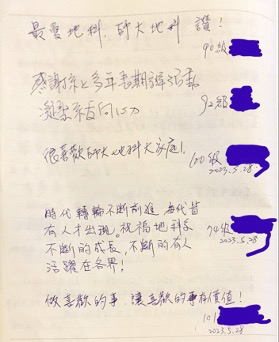 最愛地科, 師大地科 讚!
90級
感謝系上多年長期舉辦活動
凝聚系友向心力
92級
很喜歡師大地科大家庭!
100級
2023.5.28
時代轉輪不斷前進, 每代皆
有人才出現。祝福地科系 74級
不斷的成長, 不斷的有人 2023.5.28
活躍在各界!
做喜歡的事, 讓喜歡的事有價值!
101
2023.5.28